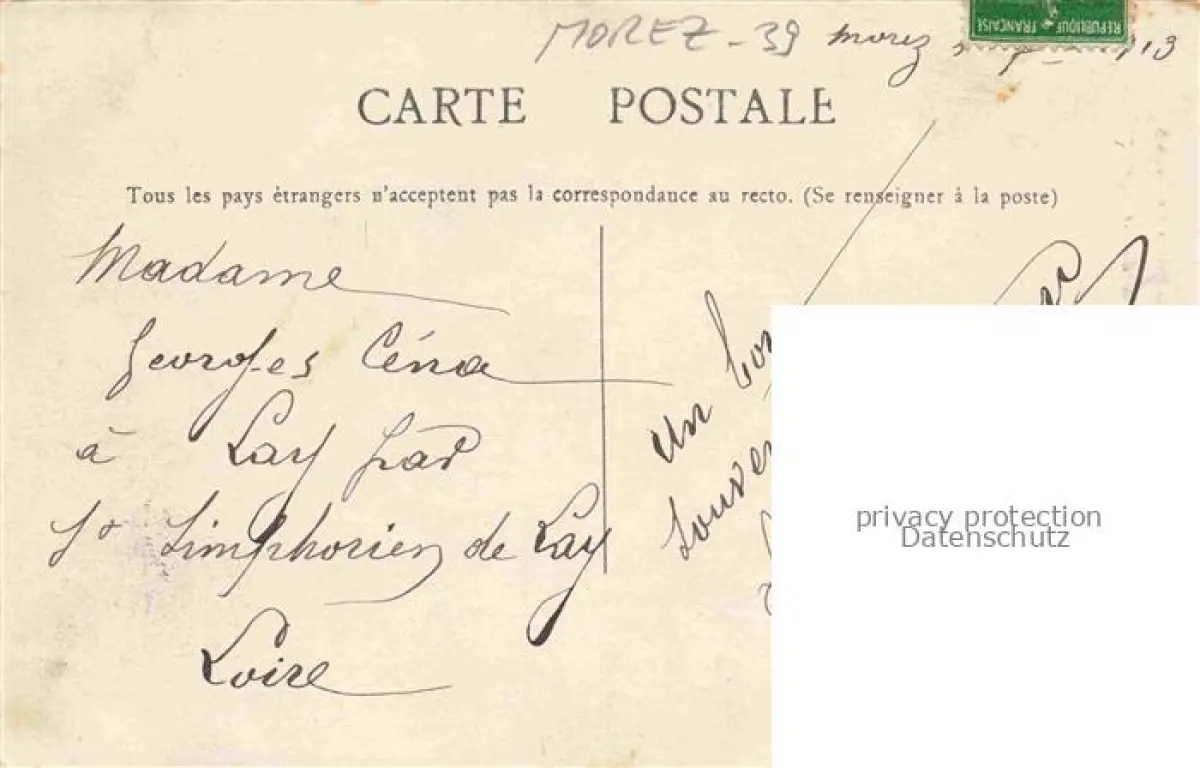 MOREZ - 39 Morez
RÉPUBLIQUE FRANÇAISE
CARTE POSTALE
Tous les pays étrangers n'acceptent pas la correspondance au recto. (Se renseigner à la poste)
Madame
Georges Céna
à Lay par
St Simphorien de Lay
Loire
Un
privacy protection
Datenschutz